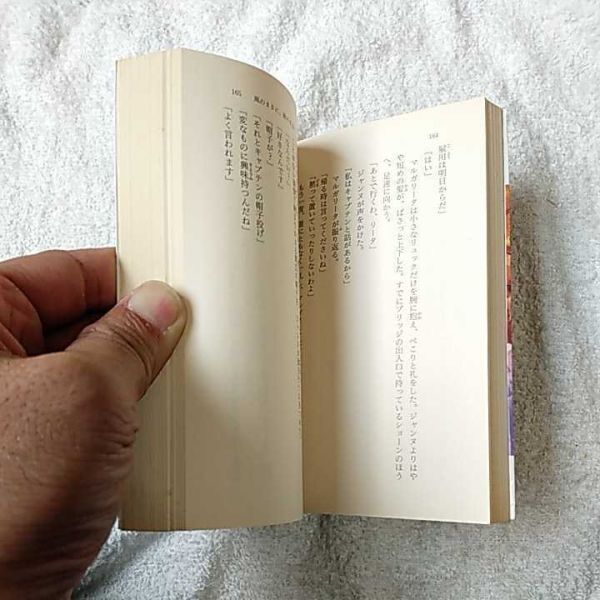 164
雇用は明日からだ」
「はい」
マルガリータは小さなリュックだけを胸に抱え、ぺこりと礼をした。ジャンヌよりはや
や短めの髪が、ばさっと上下した。すでにブリッジの出入口で待っているショーンのほう
へ、足速に向かう。
「あとで行くわ、リータ」
ジャンヌが声をかけた。
「私はキャプテンと話があるから」
マルガリータが振り返る。
「帰る時は言ってくださいね」
「黙って置いていったりしないわよ」
もう一度、
165
風のまにま
「好きなんです」
「帽子が？」
「それとキャプテンの帽子投げ」
「変なものに興味持つんだね」
「よく言われます」